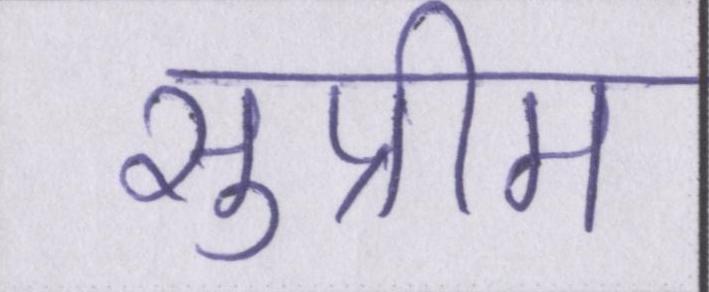 सुप्रीम